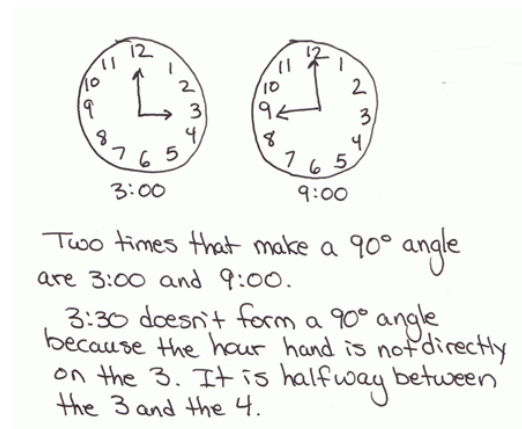 12
11
1
10
2
9
3
8
4
7
6
5
3:00
12
11
1
10
2
9
3
8
4
7
6
5
9:00
Two times that make a 90° angle
are 3:00 and 9:00.
3:30 doesn't form a 90° angle
because the hour hand is not directly
on the 3. It is halfway between
the 3 and the 4.